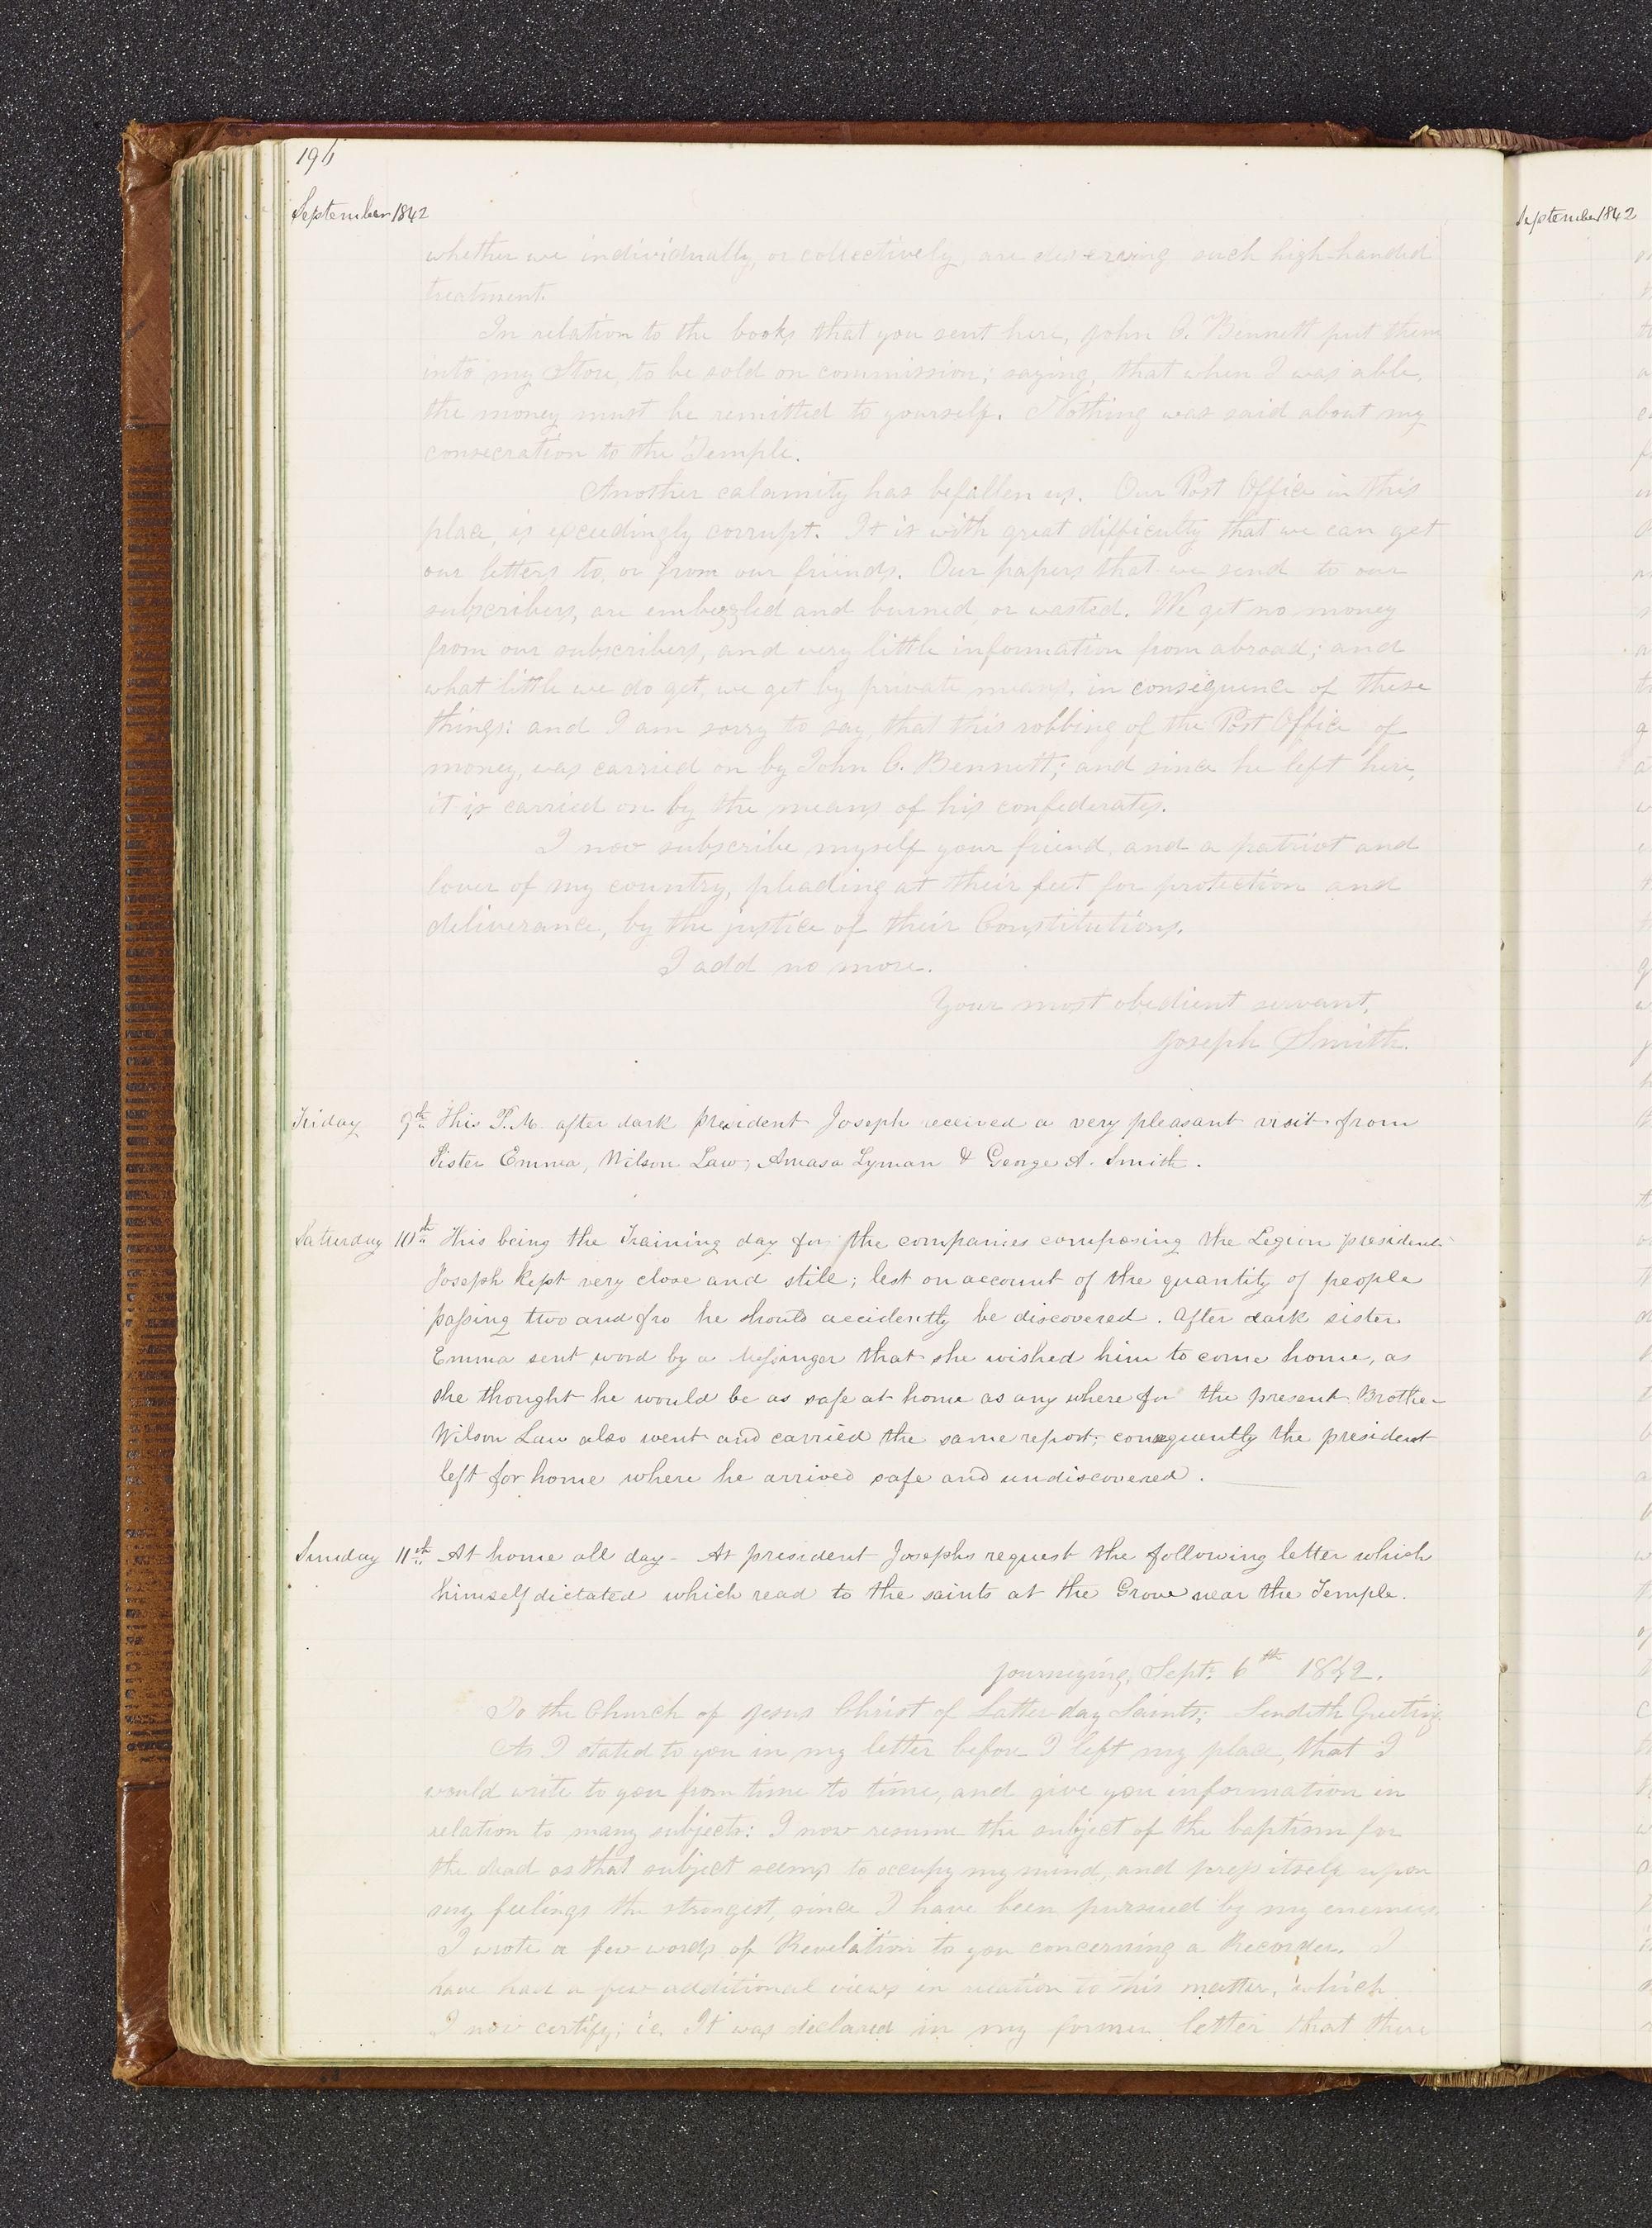 196
September 1842
whether we individually, or collectively, are deserving such high-handed
treatment.
In relation to the books that you sent here, John C. Bennett put them
into my Store, to be sold on commission; saying, that when I was able,
the money must be remitted to yourself. Nothing was said about my
consecration to the Temple.
Another calamity has befallen us. Our Post Office in this
place, is exceedingly corrupt. It is with great difficulty that we can get
our letters to, or from our friends. Our papers that we send to our
subscribers, are embezzled and burned, or wasted. We get no money
from our subscribers, and very little information from abroad; and
what little we do get, we get by private means, in consequence of these
things: and I am sorry to say, that this robbing of the Post Office of
money, was carried on by John C. Bennett; and since he left here,
it is carried on by the means of his confederates.
I now subscribe myself your friend, and a patriot and
lover of my country, pleading at their feet for protection and
deliverance, by the justice of their Constitutions.
I add no more.
Your most obedient servant,
Joseph Smith.
Friday 9th This P.M. after dark president Joseph received a very pleasant visit from
Sister Emma, Wilson Law, Amasa Lyman & George A. Smith.
Saturday 10th This being the Training day for the companies composing the Legion president
Joseph kept very close and still; lest on account of the quantity of people
passing two and fro he should accidently be discovered. After dark sister
Emma sent word by a Messinger that she wished him to come home, as
she thought he would be as safe at home as any where for the present. Brother
Wilson Law also went and carried the same report; consequently the president
left for home where he arrived safe and undiscovered.
Sunday 11th At home all day - At president Josephs request the following letter which
himself dictated which read to the saints at the Grove near the Temple.
Journeying, Sept. 6th 1842.
To the Church of Jesus Christ of Latter day Saints; Sendeth Greeting
As I stated to you in my letter before I left my place, that I
would write to you from time to time, and give you information in
relation to many subjects: I now resume the subject of the baptism for
the dead as that subject seems to occupy my mind, and press itself upon
my feelings the strongest, since I have been pursued by my enemies.
I wrote a few words of Revelation to you concerning a Recorder. I
have had a few additional views in relation to this matter, which
I now certify; ie. It was declared in my former letter that there
September 1842